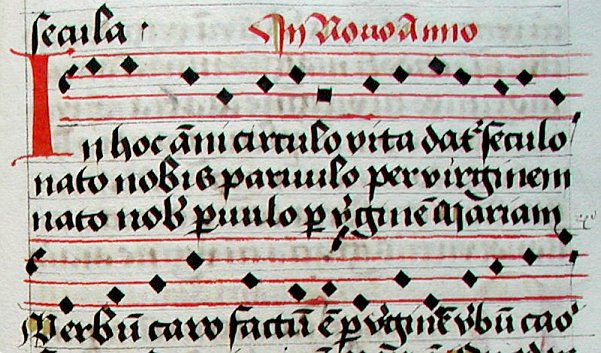 secula · In Novo Anno
In hoc āni circulo vita dat' seculo
nato nobis parvulo per virginem
nato nob' p̱vulo p̱ v'ginē Mariam
Verbū caro factū ē p̱ v'ginē v'bū cao'